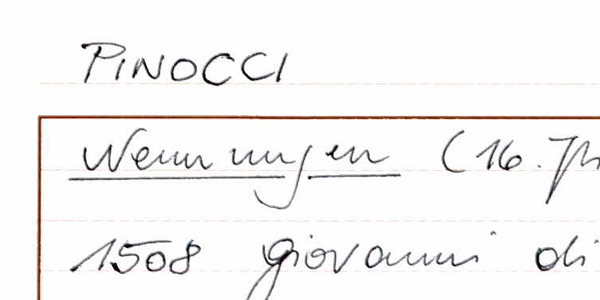 PINOCCI
Nennungen (16. Jh
1508 giovanni di